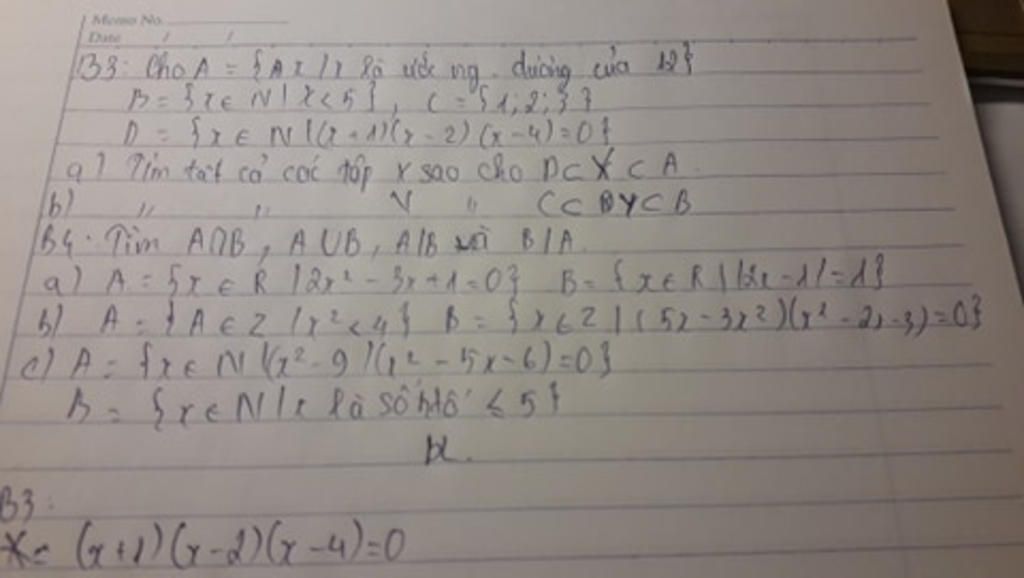 Memo No.
Date / /
B3: Cho A = { A x / x là ước ng. dương của 12}
B = {x ∈ N | x < 5}, C = {1; 2; 3}
D = {x ∈ N | (x + 1)(x - 2)(x - 4) = 0}
a) Tìm tất cả các tập X sao cho D ⊂ X ⊂ A
b) " " Y " C ⊂ Y ⊂ B
B4. Tìm A∩B, A∪B, A\B với B\A
a) A = {x ∈ R / 2x² - 3x + 1 = 0} B = {x ∈ R | |2x - 1| = 1}
b) A = { A ∈ Z / x² < 4 } B = {x ∈ Z | (5x - 3x²)(x² - 2x - 3) = 0}
c) A = {x ∈ N | (x² - 9)(x² - 5x - 6) = 0}
B = {x ∈ N / x là số ntố ≤ 5}
B3:
X = (x+1)(x-2)(x-4)=0